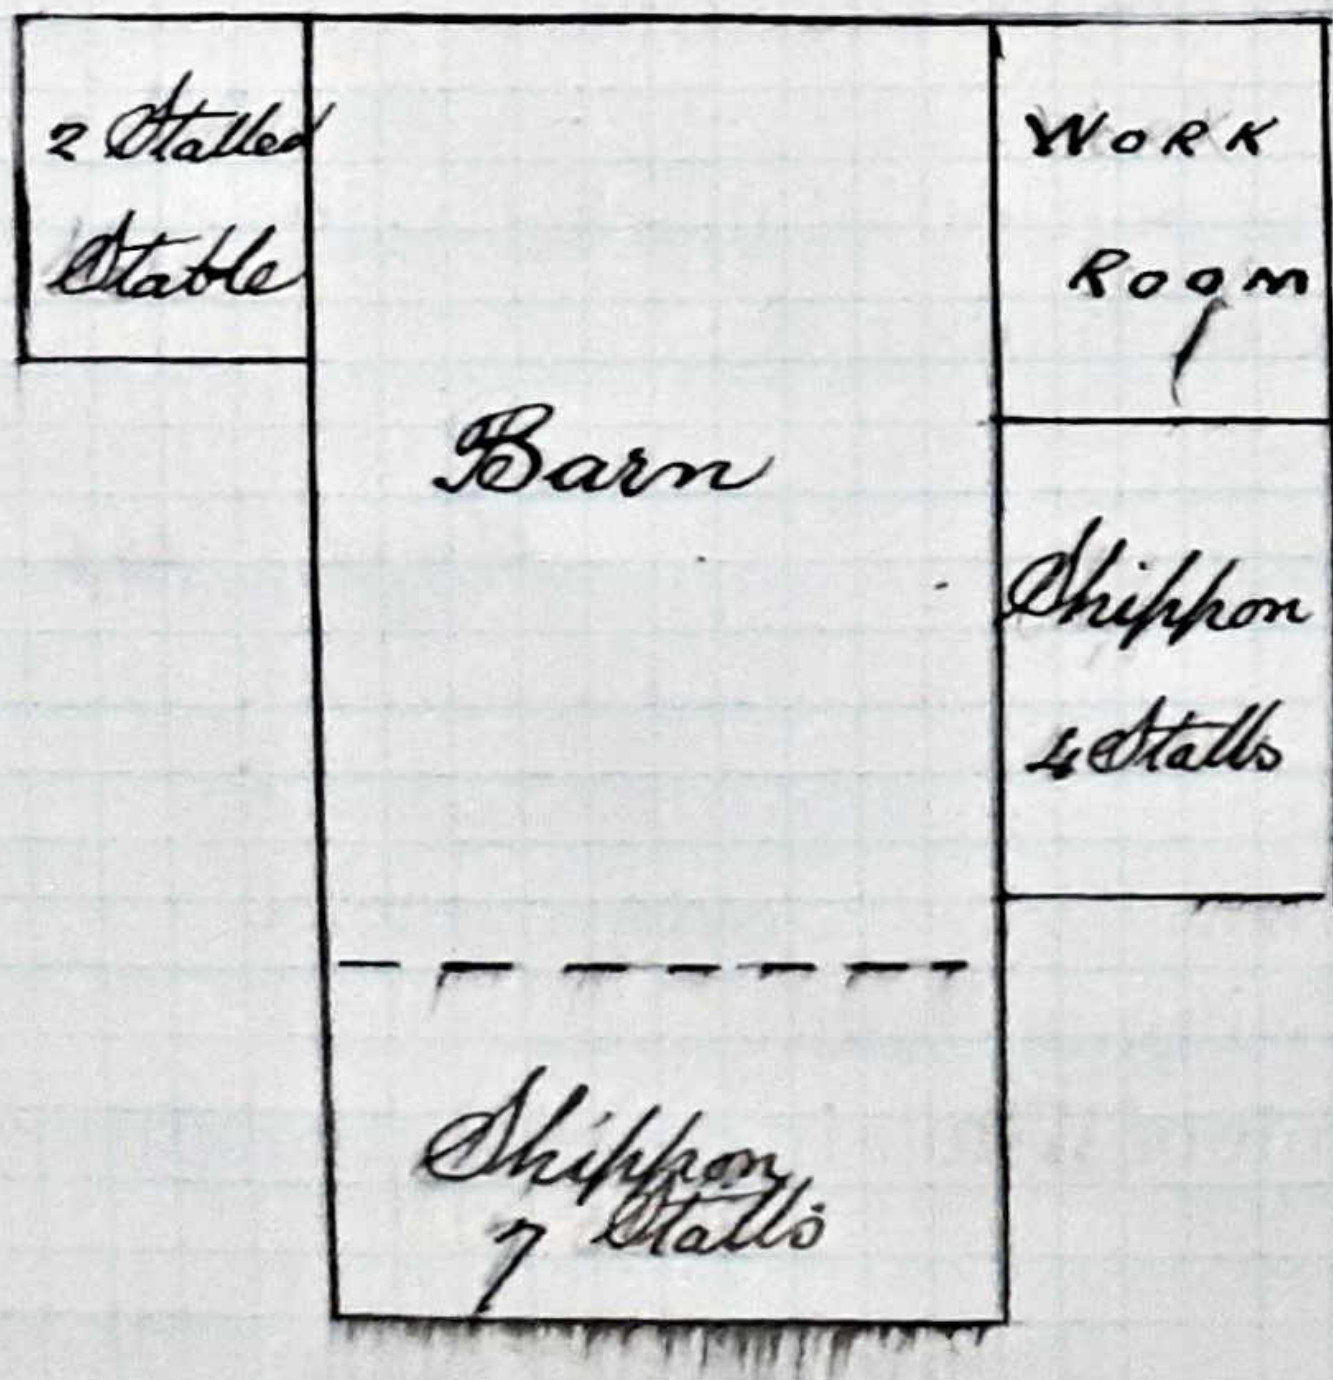 2 Stalled
Stable
Barn
WORK
ROOM
Shippon
4 Stalls
Shippon
7 Stalls